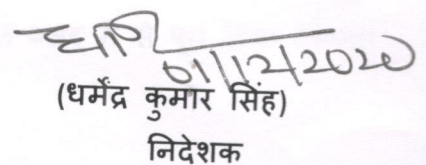 01/12/2020
(धर्मेंद्र कुमार सिंह)
निदेशक